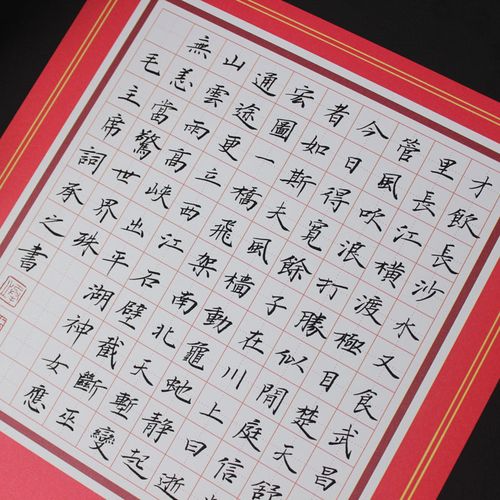 才飲長沙水又食武昌
里長江橫渡極目楚天舒
管風吹浪打勝似閒庭信
今日得寬餘子在川上曰逝
者如斯夫風檣動龜蛇靜起
宏圖一橋飛架南北天塹變
通途更立西江石壁截斷巫
山雲雨高峽出平湖神女應
無恙當驚世界殊
毛主席詞承之書